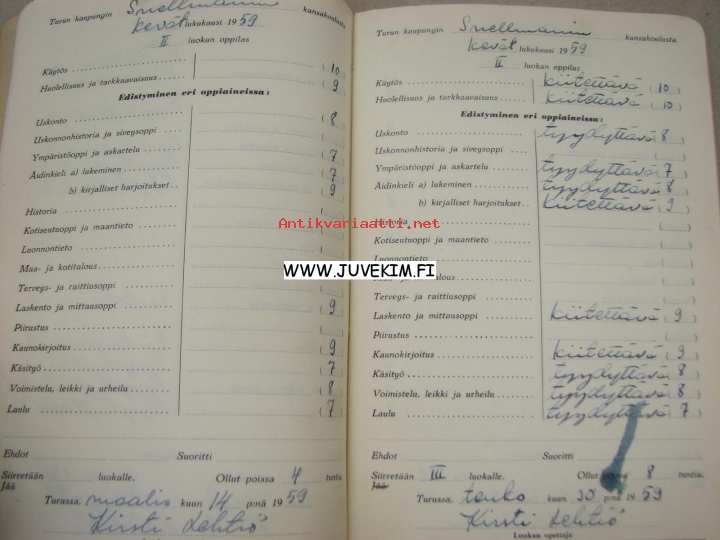 Turun kaupungin Snellmanin kansakoulusta
kevät lukukausi 1959
II luokan oppilas
Käytös (10)
Huolellisuus ja tarkkaavaisuus (9)
Edistyminen eri oppiaineissa:
Uskonto (8)
Uskonnonhistoria ja siveysoppi ( )
Ympäristöoppi ja askartelu (7)
Äidinkieli a) lukeminen (7)
b) kirjalliset harjoitukset (9)
Historia
Kotiseutuoppi ja maantieto
Luonnontieto
Maa- ja kotitalous
Terveys- ja raittiusoppi
Laskento ja mittausoppi (9)
Piirustus
Kaunokirjoitus (9)
Käsityö (7)
Voimistelu, leikki ja urheilu (8)
Laulu (7)
Ehdot Suoritti
Siirretään luokalle. Ollut poissa 4 tuntia
Jää
Turussa, maalis kuun 14 p:nä 1959
Kirsti Lehtiö
Turun kaupungin Snellmanin kansakoulusta
kevät lukukausi 1959
II luokan oppilas
Käytös kiitettävä (10)
Huolellisuus ja tarkkaavaisuus kiitettävä (10)
Edistyminen eri oppiaineissa:
Uskonto tyydyttävä 8
Uskonnonhistoria ja siveysoppi ( )
Ympäristöoppi ja askartelu tyydyttävä 7
Äidinkieli a) lukeminen tyydyttävä 8
b) kirjalliset harjoitukset kiitettävä (9)
Kotiseutuoppi ja maantieto
Luonnontieto
talous
Terveys- ja raittiusoppi
Laskento ja mittausoppi kiitettävä 9
Piirustus
Kaunokirjoitus kiitettävä (9)
Käsityö tyydyttävä 8
Voimistelu, leikki ja urheilu tyydyttävä 8
Laulu tyydyttävä 7
Ehdot Suoritti
Siirretään III luokalle. Ollut poissa 8 tuntia.
Jää
Turussa, touko kuun 30 p:nä 1959
Kirsti Lehtiö
Luokan opettaja
Antikvariaatti.net
WWW.JUVEKIM.FI